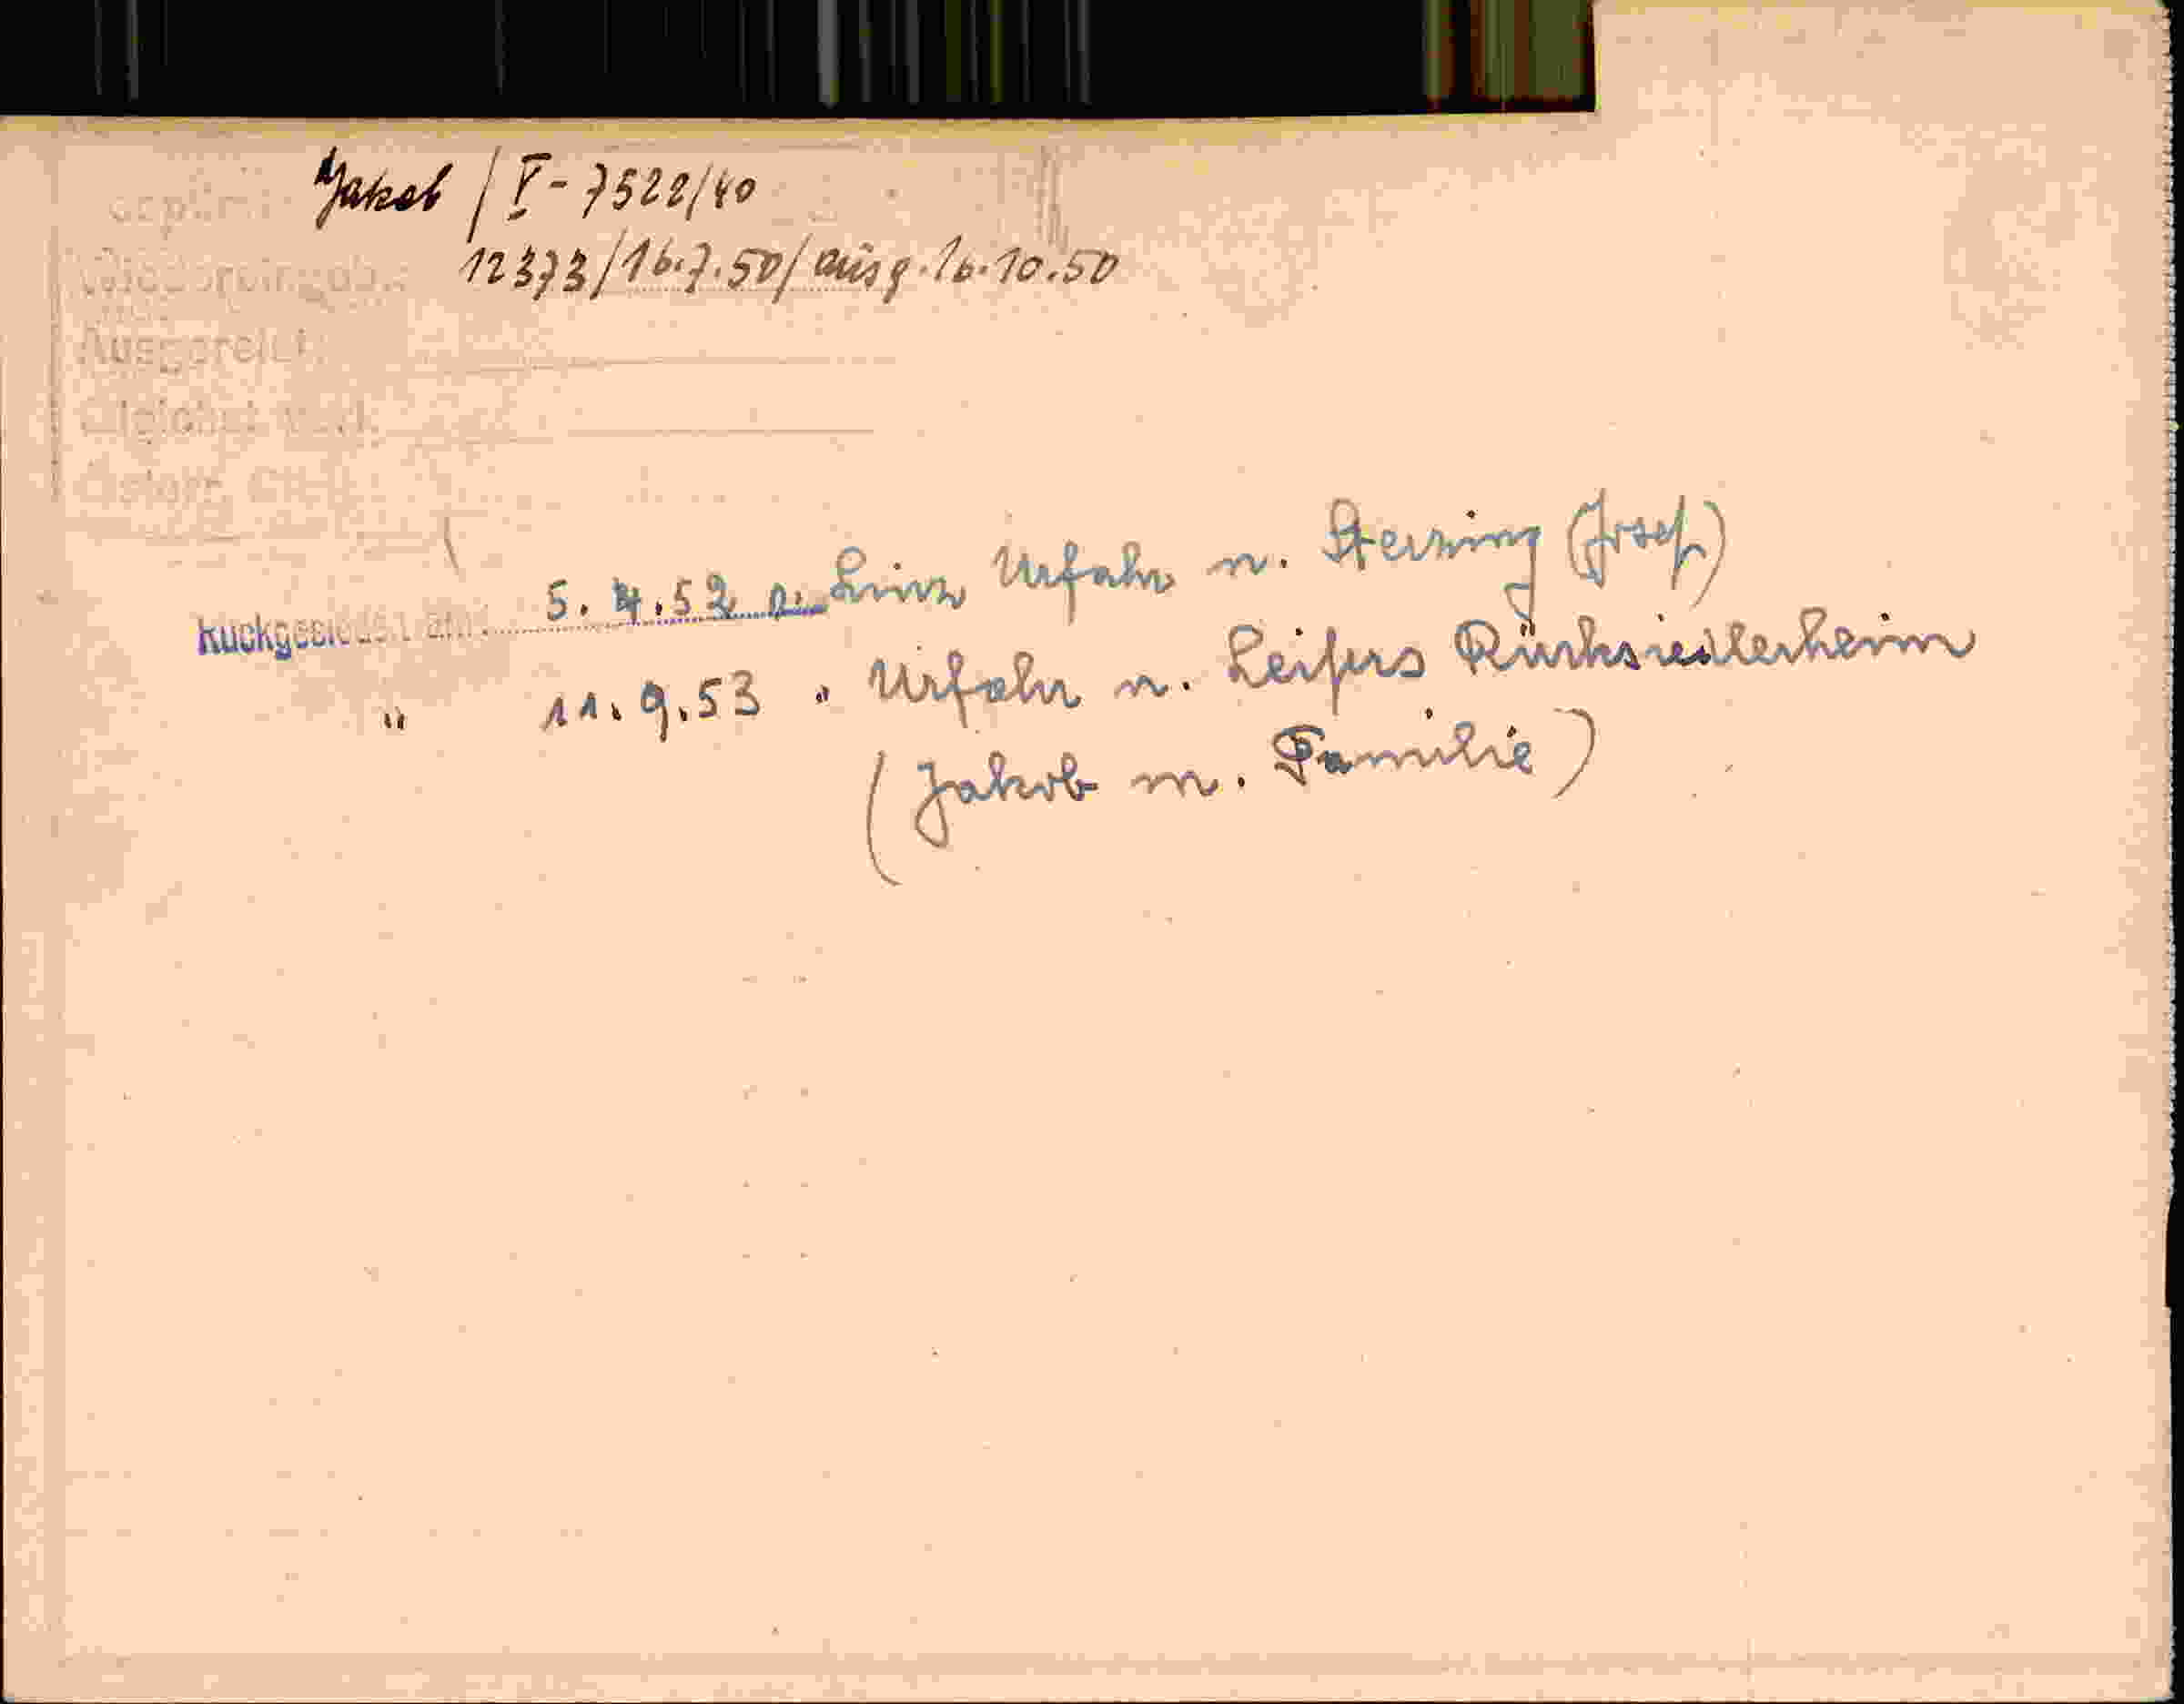 Jakob / V - 7522/40
12373/16.7.50/ausg. 16.10.50
Ausgereist:
Rückgesiedelt am: 5. 4. 52 v. Linz Urfahr n. Sterzing (Josef)
" 11. 9. 53 " Urfahr n. Leifers Rücksiedlerheim
(Jakob m. Familie)